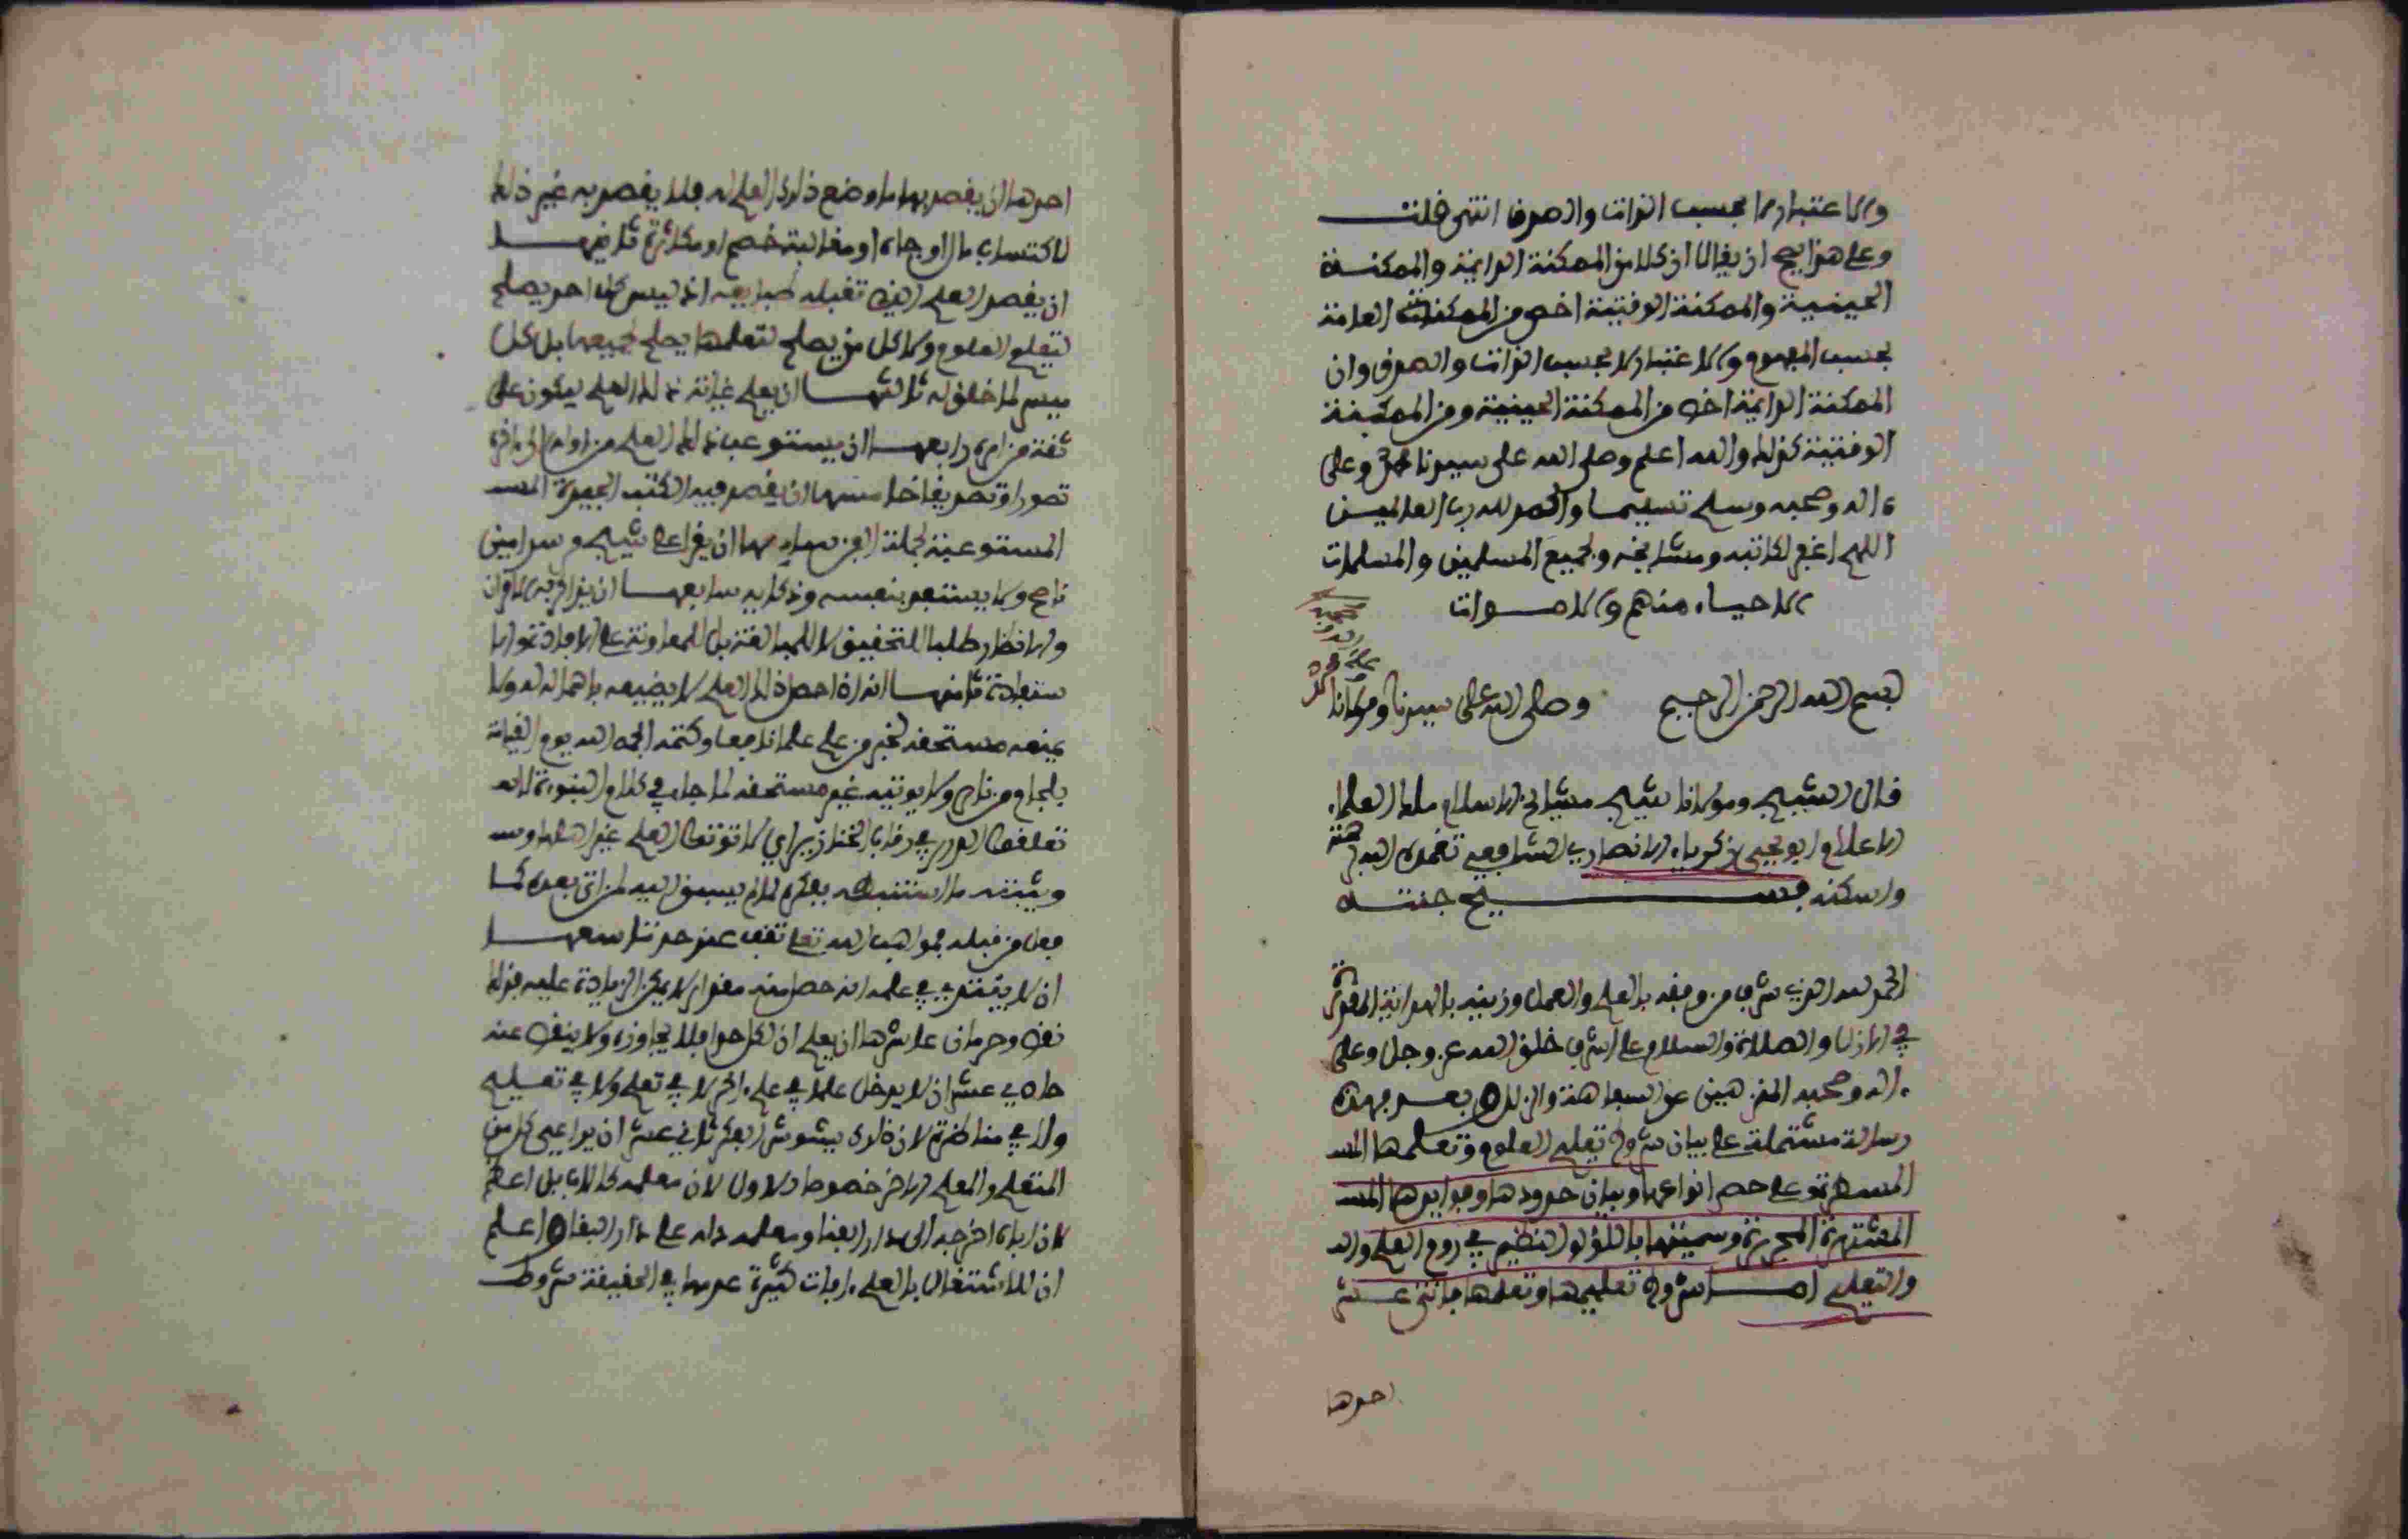 والاعتبار لا بحسب الذات والصدق انتهى قلت
وعلى هذا يصح ان يقال ان كلا من الممكنة الدايمة والممكنة
الحينية والممكنة الوقتية اخص من الممكنة العامة
بحسب المفهوم والاعتبار لا بحسب الذات والصدق وان
الممكنة الدايمة اخص من الممكنة الحينية ومن الممكنة
الوقتية كذلك والله اعلم وصلى الله على سيدنا محمد وعلى
ءاله وصحبه وسلم تسليما والحمد لله رب العالمين
اللهم اغفر لكاتبه ومشايخه ولجميع المسلمين والمسلمات
الاحياء منهم والاموات
بسم الله الرحمن الرحيم وصلى الله على سيدنا ومولانا
محمد وعلى ءاله وصحبه
قال الشيخ ومولانا شيخ مشايخ الاسلام ملك العلماء
الاعلام ابو يحيى زكرياء الانصاري الشافعي تغمده الله برحمته
واسكنه فسيح جنته
الحمد لله الذي شرف من وفقه بالعلم والعمل وزينه بالهداية المقدرة
في الازل والصلاة والسلام على اشرف خلق الله عز وجل وعلى
ءاله وصحبه المنزهين عن السفاهة والزلل وبعد فهذه
رسالة مشتملة على بيان شروط تعليم العلوم وتعلمها المس
المسطرة على حصر انواعها وبيان حدودها وفوايدها المس
المشتهرة المحررة وسميتها باللؤلؤ النظيم في روم العلم وال
والتعليم اما شروط تعليمها وتعلمها فاثنى عشر
احدها
احدها ان يقصد بها ما وضع ذلك العلم له فلا يقصد به غير ذلك
لاكتساب مال او جاه او مغالبة خصم او مكاثرة ثانيها
ان يقصد العلم الذي تقبله طبايعه اذ ليس كل احد يصلح
لتعلم العلوم ولا كل من يصلح لتعلمها يصلح لجميعها بل كل
ميسر لما خلق له ثالثها ان يعلم غاية ذلك العلم ليكون على
ثقة من امره رابعها ان يستوعب ذلك العلم من اوله الى ءاخره
تصورا وتصديقا خامسها ان يقصد فيه الكتب الجيدة المس
المستوعبة لجملة الفن سادسها ان يقرا على شيخ مرشد امين
ناصح ولا يستبد بنفسه وذكايه سابعها ان يذاكر به الاقران
والانظار طلبا للتحقيق لا للمغالبة بل للمعاونة على الافادة والا
ستفادة ثامنها انه اذا حصل ذلك العلم لا يضيعه باهماله ولا
يمنعه مستحقه لخبر من علم علما نافعا وكتمه الجمه الله يوم القيامة
بلجام من نار ولا يوتيه غير مستحقه لما جاء في كلام النبوءة لا
تعلقوا الدرر في رقاب الخنازير اي لا توتوا العلم غير اهله
ويثبت ما استنبطه بفكره مما لم يسبق اليه لمن اتى بعده كما
فعل من قبله فمواهب الله تعلى تقف عند حد تاسعها
ان لا يعتقد في علم انه حصل منه مقدار لا يمكن الزيادة عليه فذلك
نقص وحرمان عاشرها ان يعلم ان لكل حدا فلا يتجاوزه ولا ينقص عنه
حادي عشر ان لا يدخل علما في علم ءاخر لا في تعلم ولا في تعليم
ولا في مناظرة لان ذلك يشوش الفكر ثاني عشر ان يراعي كل من
المتعلم والمعلم الاخر خصوصا الاول لان معلمه كالاب بل اعظم
لان اباه اخرجه الى دار الفنا ومعلمه دله على دار البقا واعلم
ان للاشتغال بالعلم ءافات كثيرة عدمها في الحقيقة شروط